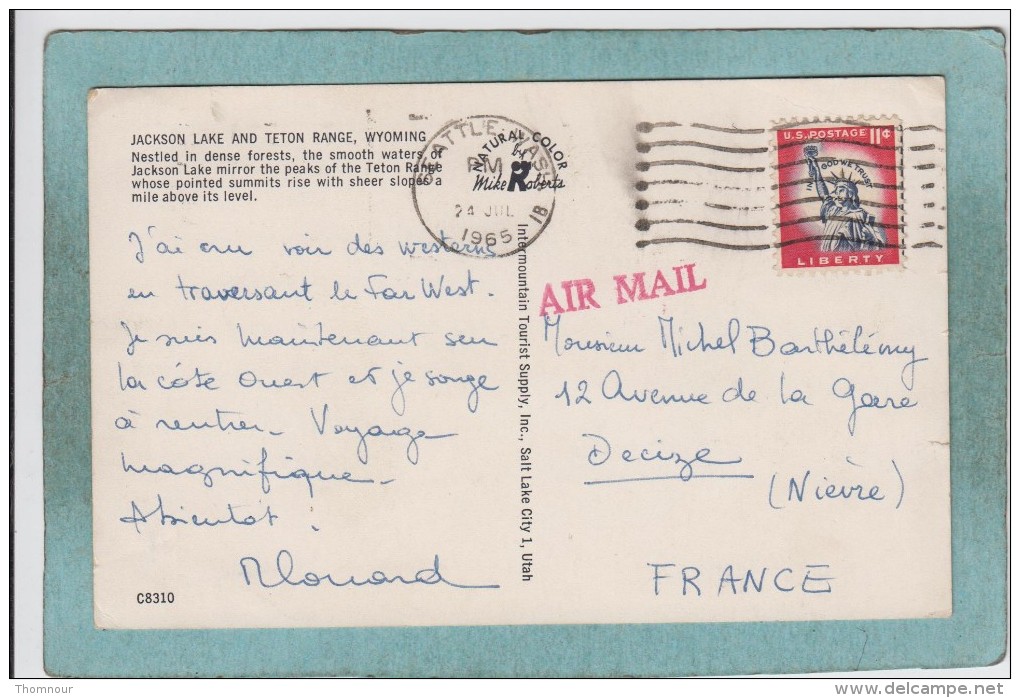 JACKSON LAKE AND TETON RANGE, WYOMING
Nestled in dense forests, the smooth waters of
Jackson Lake mirror the peaks of the Teton Range
whose pointed summits rise with sheer slopes a
mile above its level.
SEATTLE WASH
PM
24 JUL
1965
1B
NATURAL COLOR
by
Mike Roberts
U.S. POSTAGE 11¢
IN GOD WE TRUST
LIBERTY
AIR MAIL
J'ai cru voir des westerns
en traversant le Far West.
Je suis maintenant sur
la côte Ouest et je songe
à rentrer. Voyage
magnifique.
A bientôt.
Intermountain Tourist Supply, Inc., Salt Lake City 1, Utah
Monsieur Michel Barthélémy
12 Avenue de la Gare
Decize
(Nièvre)
FRANCE
C8310
Thomnour
www.delcampe.net